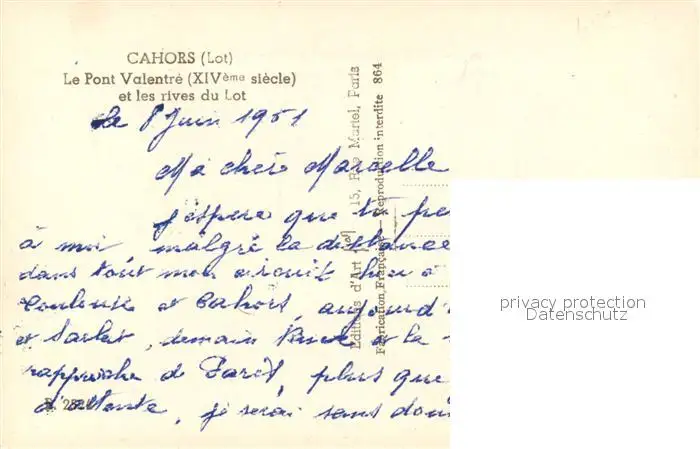 CAHORS (Lot)
Le Pont Valentré (XIVème siècle)
et les rives du Lot
le 8 Juin 1951
Ma chère Marcelle
j'espère que tu pe
à moi malgré la distance
dans tout mon circuit hier à
Toulouse et Cahors, aujourd'
et Sarlat, demain et la
rapproche de Paris, plus que
d'attente, je serai sans dou
Editions d'Art 15, Rue Martel, Paris
Fabrication Française — Reproduction interdite 864
privacy protection
Datenschutz